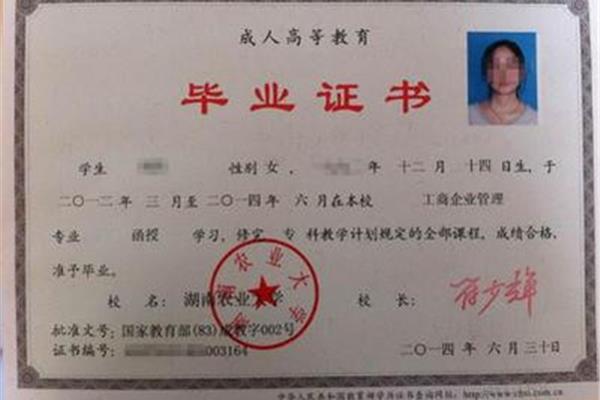 成人高等教育
毕业证书
学生 性别 女 , 年 十二 月 二十四日生,于
二〇一二年 三 月至 二〇一四年 六 月在本校 工商企业管理
专业 函授 学习,修完 专 科教学计划规定的全部课程,成绩合格,
准予毕业。
校 名: 湖南农业大学 校 长:
湖南农业大学
批准文号: 国家教育部(83)成教字002号
证书编号: 003164 二〇一四年 六 月三十日
中华人民共和国教育部学历证书查询网址:http://www.chsi.com.cn